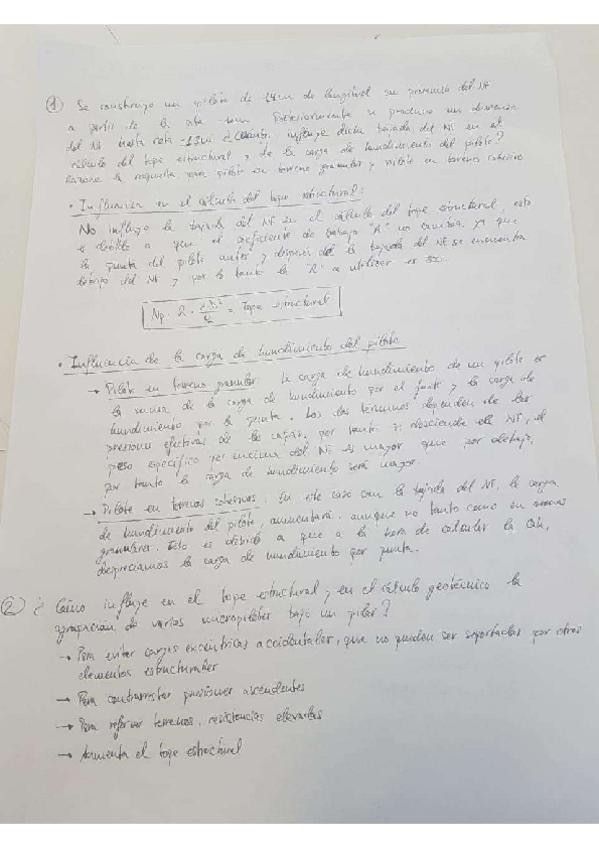 ① Se construye un pilote de 14m de longitud en presencia del NF
a partir de la cota Posteriormente se produce un descenso
del NF hasta cota -13m ¿Cuánto influye dicha bajada del NF en el
cálculo del tope estructural y de la carga de hundimiento del pilote?
Razone la respuesta para pilote en terreno granular y pilote en terreno cohesivo
• Influencia en el cálculo del tope estructural:
No influye la bajada del NF en el cálculo del tope estructural, esto
es debido a que el coeficiente de trabajo "R" no cambia, ya que
la punta del pilote antes y después de la bajada del NF se encuentra
debajo del NF y por lo tanto la "R" a utilizar es
= Tope estructural
• Influencia de la carga de hundimiento del pilote
→ Pilote en terreno granular. La carga de hundimiento de un pilote es
la suma de la carga de hundimiento por el fuste y la carga de
hundimiento por la punta. Los dos términos dependen de las
presiones efectivas de la capa, por tanto si desciende el NF, el
peso específico por encima del NF es mayor que por debajo,
por tanto la carga de hundimiento será mayor.
→ Pilote en terrenos cohesivos. En este caso con la bajada del NF, la carga
de hundimiento del pilote, aumentará, aunque no tanto como en arenas
granulares. Esto es debido a que a la hora de calcular la
despreciamos la carga de hundimiento por punta.
② ¿Cómo influye en el tope estructural y en el cálculo geotécnico la
agrupación de varios micropilotes bajo un pilar?
→ Para evitar cargas excéntricas accidentales, que no puedan ser soportadas por otros
elementos estructurales
→ Para contrarrestar presiones ascendentes
→ Para reforzar terrenos, resistencias elevadas
→ Aumenta el tope estructural